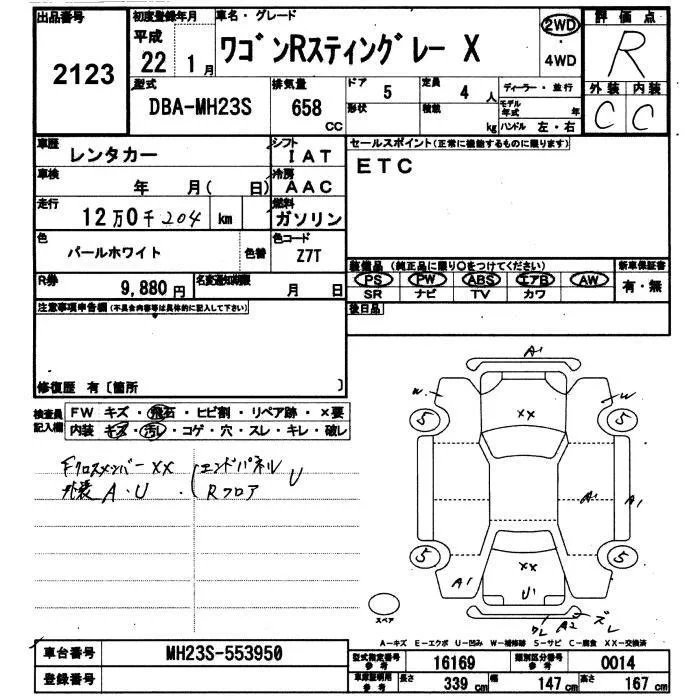 出品番号
2123
初度登録年月
平成
22 1月
車名・グレード
ワゴンRスティングレー X
2WD
4WD
評価点
R
外装 内装
C C
型式
DBA-MH23S
排気量
658
CC
ドア
5
定員
4 人
形状
積載
kg
ディーラー・並行
モデル年式 年
ハンドル 左・右
車歴
レンタカー
シフト
IAT
車検
年 月( 日)
冷房
AAC
走行
12万0千204 km
燃料
ガソリン
色
パールホワイト
色替
色コード
Z7T
R券
9,880円
名変通知期限
月 日
セールスポイント(正常に機能するものに限ります)
ETC
装備品 (純正品に限り○をつけてください)
新車保証書
PS PW ABS エアB AW
SR ナビ TV カワ
有・無
後日品
注意事項申告欄(不具合内容等は具体的に記入して下さい)
修復歴 有〔箇所 〕
検査員記入欄
FW キズ・飛石・ヒビ割・リペア跡・×要
内装 キズ・汚レ・コゲ・穴・スレ・キレ・破レ
Fクロスメンバー XX
外装 A・U
エンドパネル U
Rフロア
A1
W W
5 5
XX
A1 A1
5 5
XX
A1
U1
ワレ A2 ズレ
スペア
A-キズ E-エクボ U-凹み W-補修跡 S-サビ C-腐食 XX-交換済
車台番号
MH23S-553950
登録番号
型式指定番号
参考
16169
類別区分番号
参考
0014
車庫証明用
参考
長さ
339 cm
幅
147 cm
高さ
167 cm